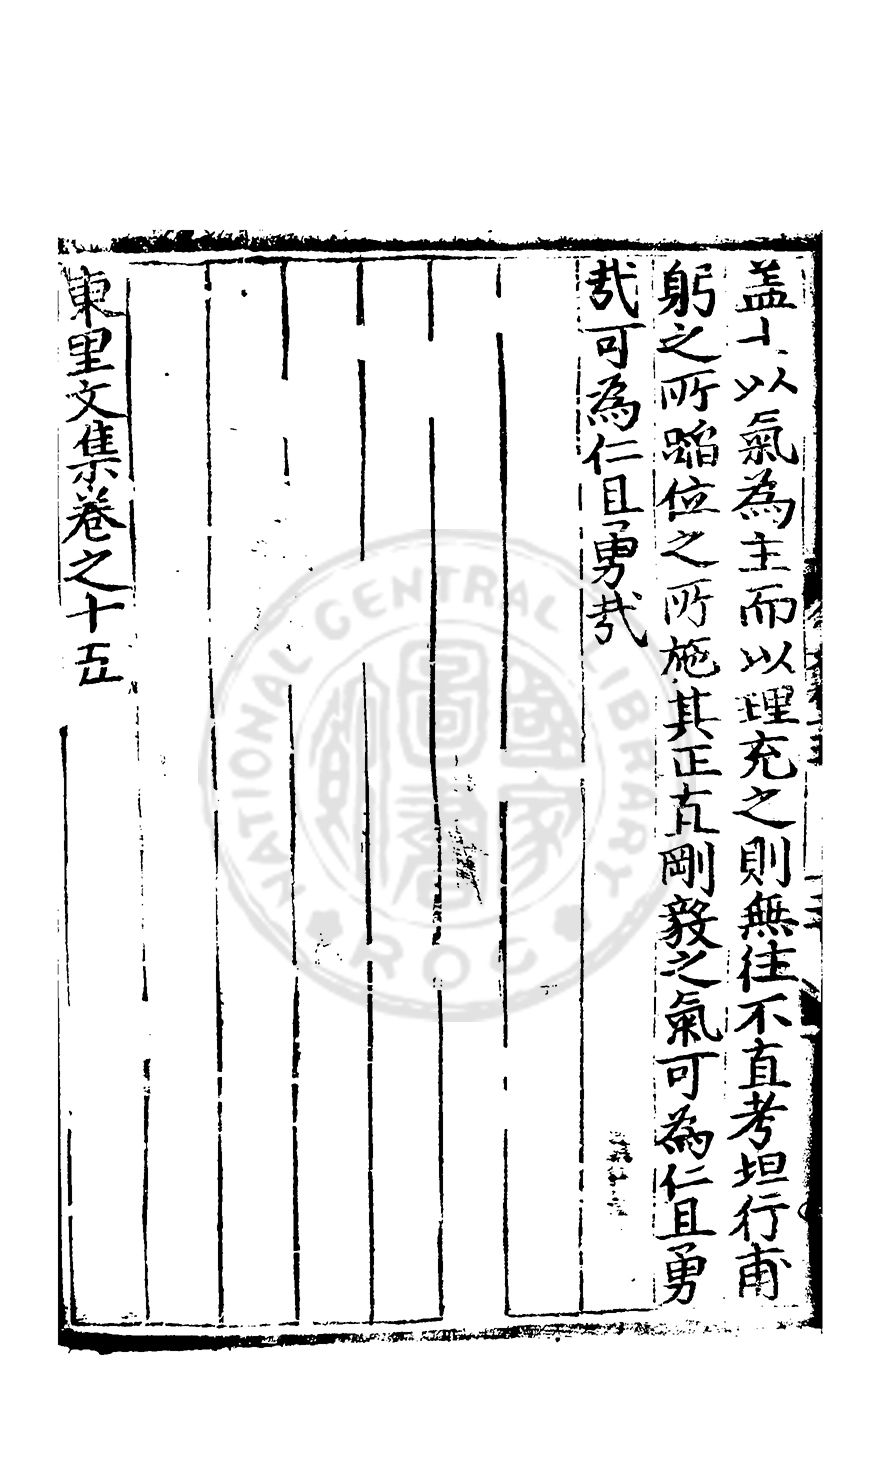 盖士以氣為主而以理充之則無徃不直考坦行甫
躬之所蹈位之所施其正直剛毅之氣可為仁且勇
哉可為仁且勇哉
東里文集卷之十五
NATIONAL CENTRAL LIBRARY
ROC
國家圖書館